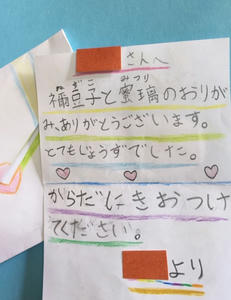 さんへ
ねずこ みつり
禰豆子と蜜璃のおりが
み、ありがとうございます。
とてもじょうずでした。
からだにきおつけ
てください。
より